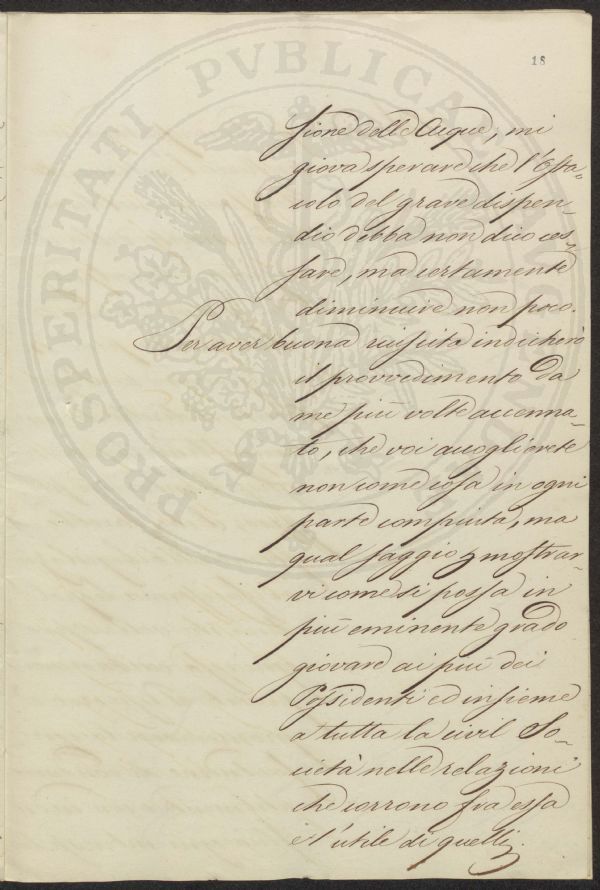 18
sione delle Acque, mi
giova sperare che l'Osta=
colo del grave dispen=
dio debba non dico ces=
sare, ma certamente
diminuire non poco.
Per aver buona riuscita indicherò
il provvedimento da
me più volte accenna=
to, che voi accoglierete
non come cosa in ogni
parte compiuta, ma
qual saggio p mostrar=
vi come si possa in
più eminente grado
giovare ai più dei
Possidenti ed insieme
a tutta la civil So=
cietà nelle relazioni
che corrono fra essa
e l'utile di quelli.
PROSPERITATI PVBLICAE